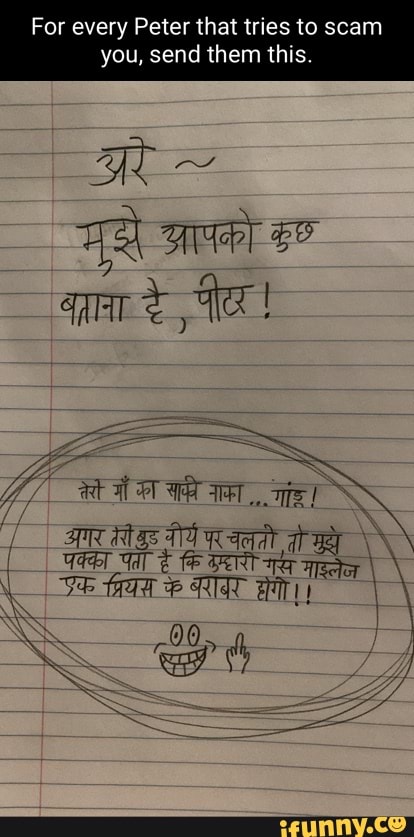 For every Peter that tries to scam
you, send them this.
अरे ~
मुझे आपको कुछ
बताना है, पीटर !
तेरी माँ का साकी नाका... गांडू!
अगर तेरी बुड वीर्य पर चलती, तो मुझे
पक्का पता है कि तुम्हारी गैस माइलेज
एक प्रियस के बराबर होगी!!
ifunny.co